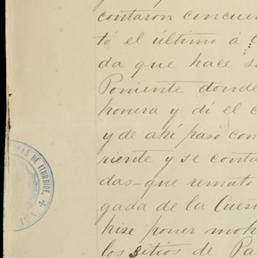 contaron cincuen
tó el último á
da que hace
Poniente donde
honera y di el
y de ahí pasó con
riente y se conta
das-que remató
gada de la Cues
hise poner moho
los sitios de Pa
DE ITURBIDE